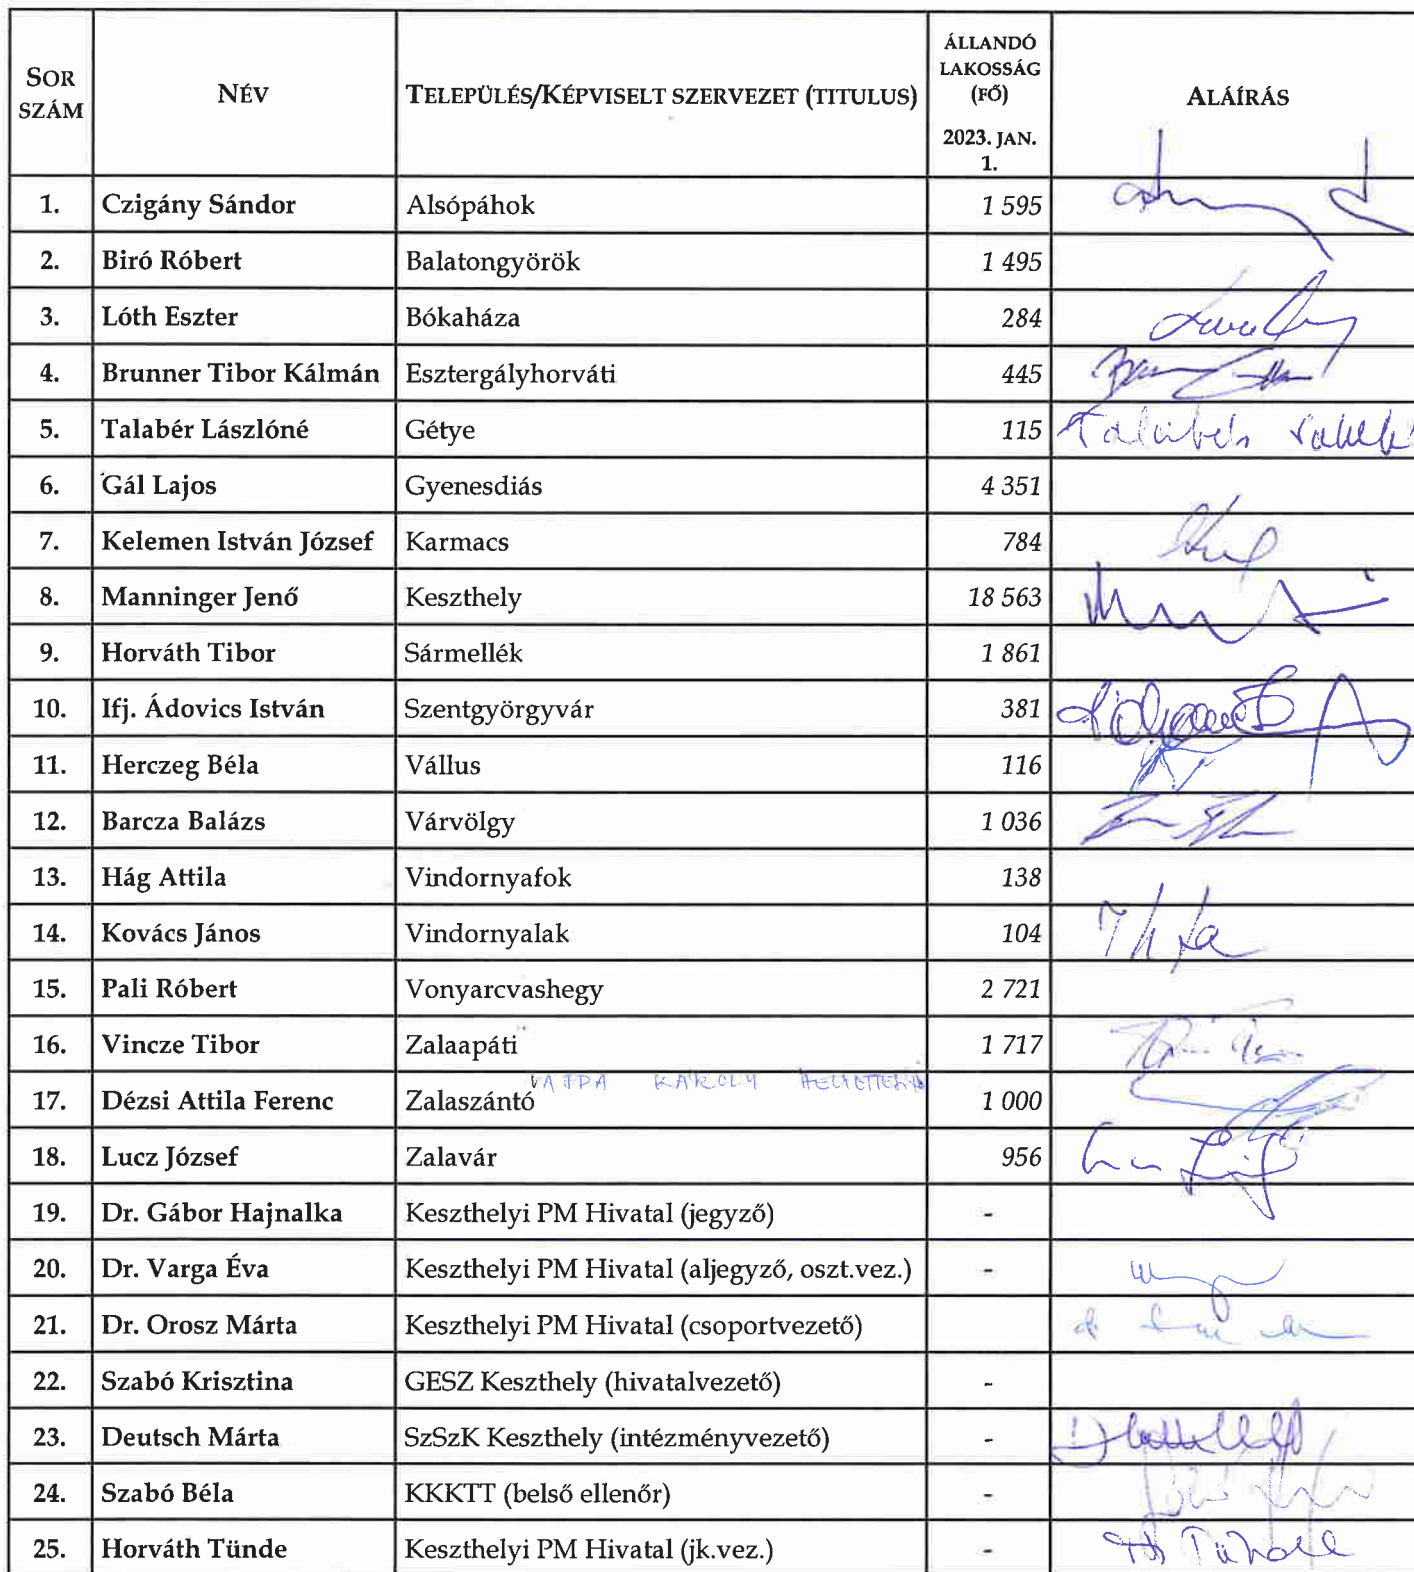 SOR SZÁM NÉV TELEPÜLÉS/KÉPVISELT SZERVEZET (TITULUS) ÁLLANDÓ LAKOSSÁG (FŐ) 2023. JAN. 1. ALÁÍRÁS
1. Czigány Sándor Alsópáhok 1 595
2. Biró Róbert Balatongyörök 1 495
3. Lóth Eszter Bókaháza 284
4. Brunner Tibor Kálmán Esztergályhorváti 445
5. Talabér Lászlóné Gétye 115
6. Gál Lajos Gyenesdiás 4 351
7. Kelemen István József Karmacs 784
8. Manninger Jenő Keszthely 18 563
9. Horváth Tibor Sármellék 1 861
10. Ifj. Ádovics István Szentgyörgyvár 381
11. Herczeg Béla Vállus 116
12. Barcza Balázs Várvölgy 1 036
13. Hág Attila Vindornyafok 138
14. Kovács János Vindornyalak 104
15. Pali Róbert Vonyarcvashegy 2 721
16. Vincze Tibor Zalaapáti 1 717
VAJDA KÁROLY
17. Dézsi Attila Ferenc Zalaszántó 1 000
18. Lucz József Zalavár 956
19. Dr. Gábor Hajnalka Keszthelyi PM Hivatal (jegyző) -
20. Dr. Varga Éva Keszthelyi PM Hivatal (aljegyző, oszt.vez.) -
21. Dr. Orosz Márta Keszthelyi PM Hivatal (csoportvezető)
22. Szabó Krisztina GESZ Keszthely (hivatalvezető) -
23. Deutsch Márta SzSzK Keszthely (intézményvezető) -
24. Szabó Béla KKKTT (belső ellenőr) -
25. Horváth Tünde Keszthelyi PM Hivatal (jk.vez.) -